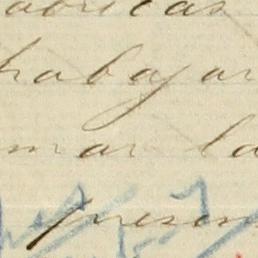 fabricas
trabajar
mar la
presen